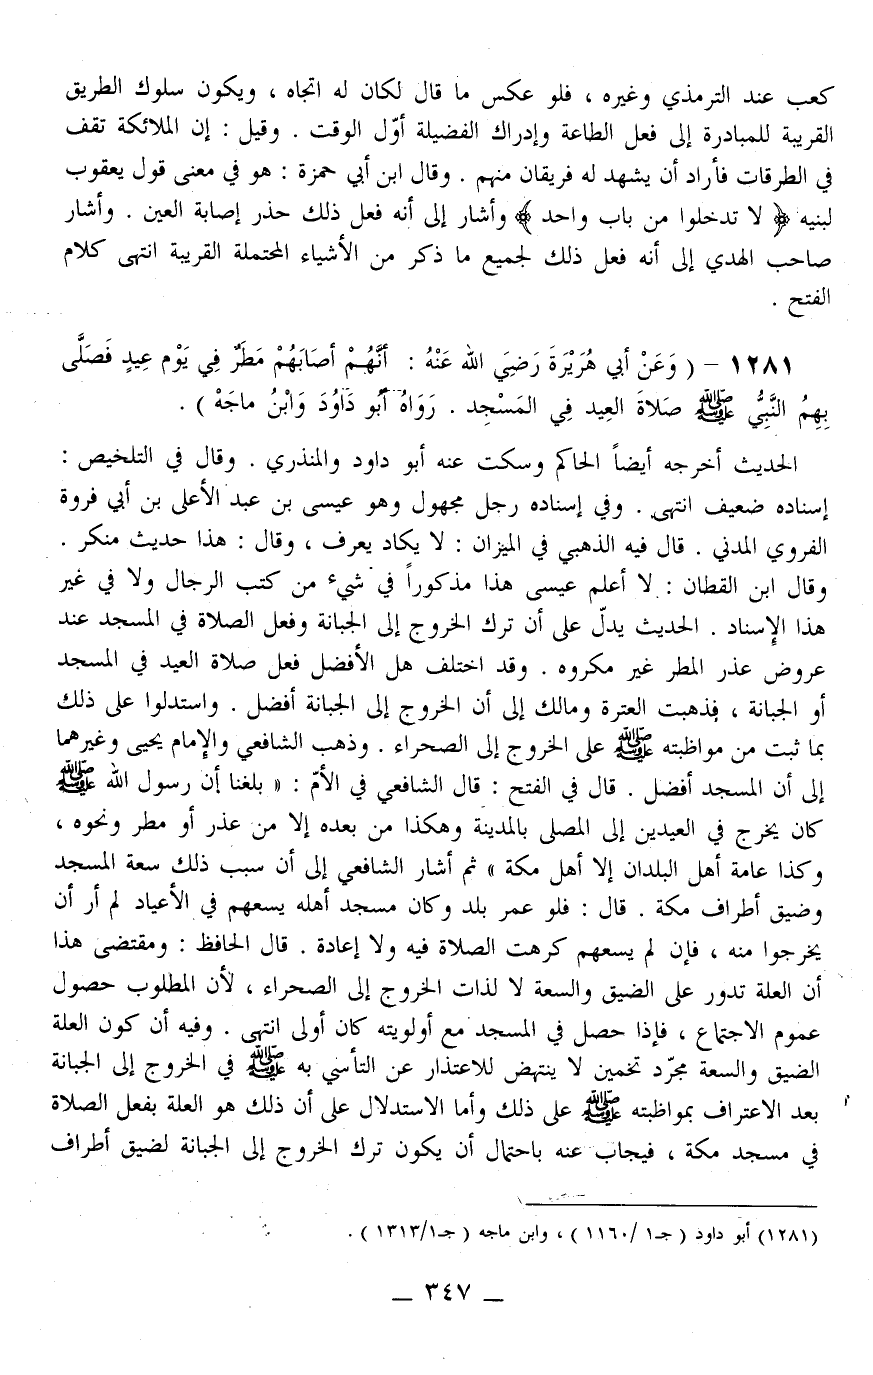 كعب عند الترمذي وغيره ، فلو عكس ما قال لكان له اتجاه ، ويكون سلوك الطريق
القريبة للمبادرة إلى فعل الطاعة وإدراك الفضيلة أوّل الوقت . وقيل : إن الملائكة تقف
في الطرقات فأراد أن يشهد له فريقان منهم . وقال ابن أبي حمزة : هو في معنى قول يعقوب
لبنيه ﴿ لا تدخلوا من باب واحد ﴾ وأشار إلى أنه فعل ذلك حذر إصابة العين . وأشار
صاحب الهدي إلى أنه فعل ذلك لجميع ما ذكر من الأشياء المحتملة القريبة انتهى كلام
الفتح .
١٢٨١ – ( وَعَنْ أبي هُرَيْرَةَ رَضِيَ الله عَنْهُ : أنَّهُـمْ أصَابَهُمْ مَطَرٌ فِي يَوْمِ عِيدٍ فَصَلَّى
بِهِمُ النَّبِيُّ ﷺ صَلاةَ العِيد فِي المَسْجِد . رَوَاهُ أبُو دَاوُدَ وَابْنُ ماجَهْ ) .
الحديث أخرجه أيضاً الحاكم وسكت عنه أبو داود والمنذري . وقال في التلخيص :
إسناده ضعيف انتهى . وفي إسناده رجل مجهول وهو عيسى بن عبد الأعلى بن أبي فروة
الفروي المدني . قال فيه الذهبي في الميزان : لا يكاد يعرف ، وقال : هذا حديث منكر .
وقال ابن القطان : لا أعلم عيسى هذا مذكوراً في شيء من كتب الرجال ولا في غير
هذا الإسناد . الحديث يدلّ على أن ترك الخروج إلى الجبانة وفعل الصلاة في المسجد عند
عروض عذر المطر غير مكروه . وقد اختلف هل الأفضل فعل صلاة العيد في المسجد
أو الجبانة ، فذهبت العترة ومالك إلى أن الخروج إلى الجبانة أفضل . واستدلوا على ذلك
بما ثبت من مواظبته ﷺ على الخروج إلى الصحراء . وذهب الشافعي والإمام يحيى وغيرهما
إلى أن المسجد أفضل . قال في الفتح : قال الشافعي في الأمّ : « بلغنا أن رسول الله ﷺ
كان يخرج في العيدين إلى المصلى بالمدينة وهكذا من بعده إلا من عذر أو مطر ونحوه ،
وكذا عامة أهل البلدان إلا أهل مكة » ثم أشار الشافعي إلى أن سبب ذلك سعة المسجد
وضيق أطراف مكة . قال : فلو عمر بلد وكان مسجد أهله يسعهم في الأعياد لم أر أن
يخرجوا منه ، فإن لم يسعهم كرهت الصلاة فيه ولا إعادة . قال الحافظ : ومقتضى هذا
أن العلة تدور على الضيق والسعة لا لذات الخروج إلى الصحراء ، لأن المطلوب حصول
عموم الاجتماع ، فإذا حصل في المسجد مع أولويته كان أولى انتهى . وفيه أن كون العلة
الضيق والسعة مجرّد تخمين لا ينتهض للاعتذار عن التأسي به ﷺ في الخروج إلى الجبانة
بعد الاعتراف بمواظبته ﷺ على ذلك وأما الاستدلال على أن ذلك هو العلة بفعل الصلاة
في مسجد مكة ، فيجاب عنه باحتمال أن يكون ترك الخروج إلى الجبانة لضيق أطراف
(١٢٨١) أبو داود ( جـ١ /١١٦٠ ) ، وابن ماجه ( جـ١/١٣١٣ ) .
— ٣٤٧ —